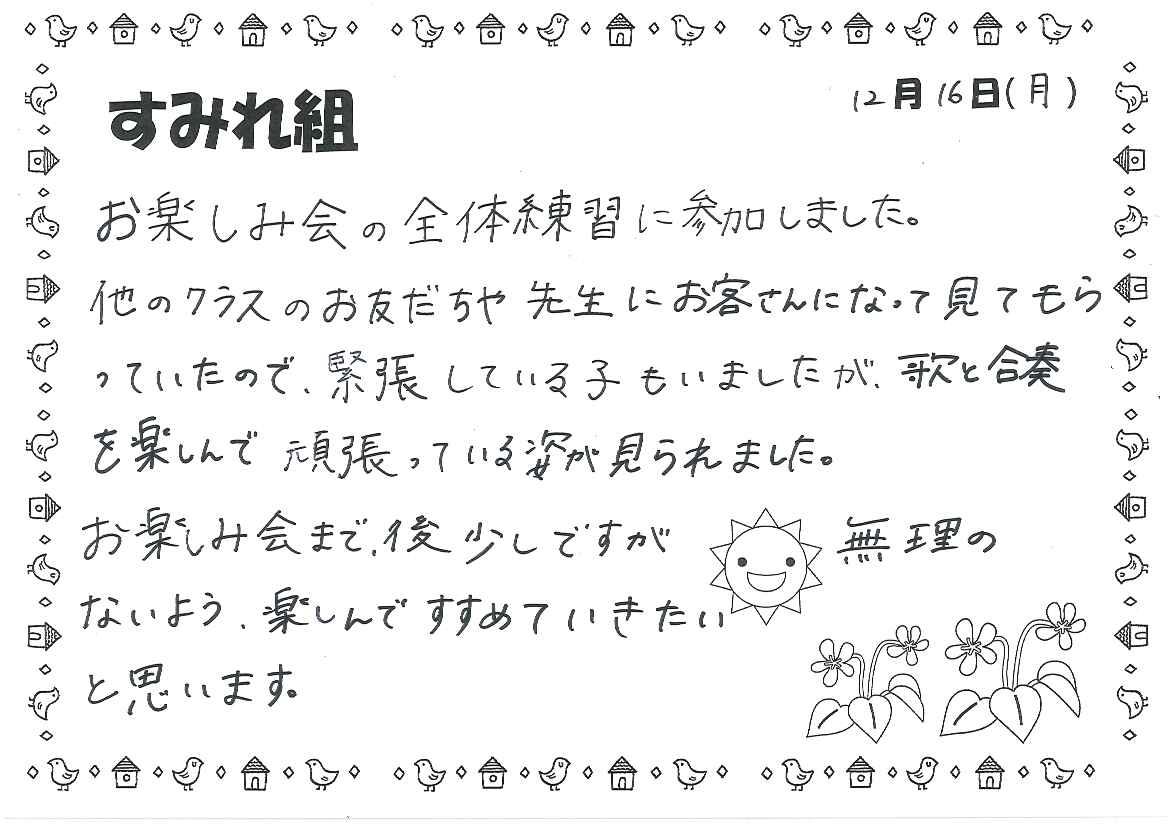 すみれ組
12月16日(月)
お楽しみ会の全体練習に参加しました。
他のクラスのお友だちや先生にお客さんになって見てもら
っていたので、緊張している子もいましたが、歌と合奏
を楽しんで頑張っている姿が見られました。
お楽しみ会まで、後少しですが無理の
ないよう、楽しんですすめていきたい
と思います。